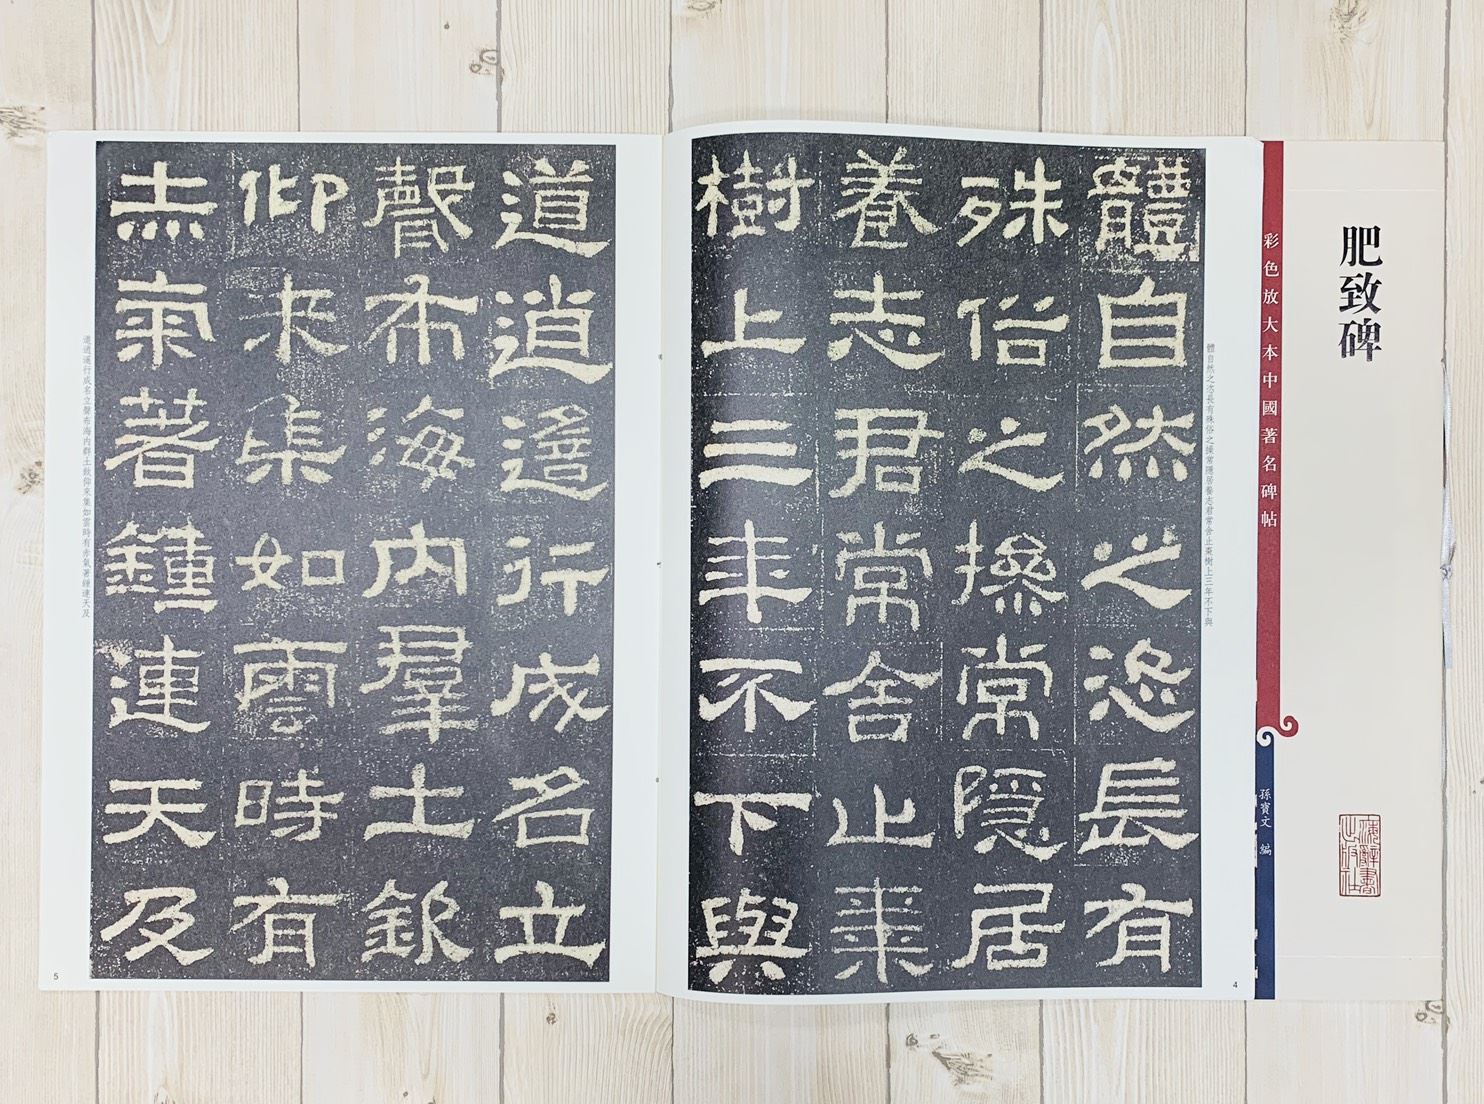 肥致碑
海辭書
出版社
彩色放大本中國著名碑帖
孫寶文 編
體自然之恣長有殊俗之操常隱居養志君常舍止棗樹上三年不下與
體自然之恣長有
殊俗之操常隱居
養志君常舍止棗
樹上三年不下與
4
道逍遙行成名立
聲布海内羣士欽
仰来集如雲時有
赤氣著鍾連天及
道逍遙行成名立聲布海内群士欽仰來集如雲時有赤氣著鍾連天及
5